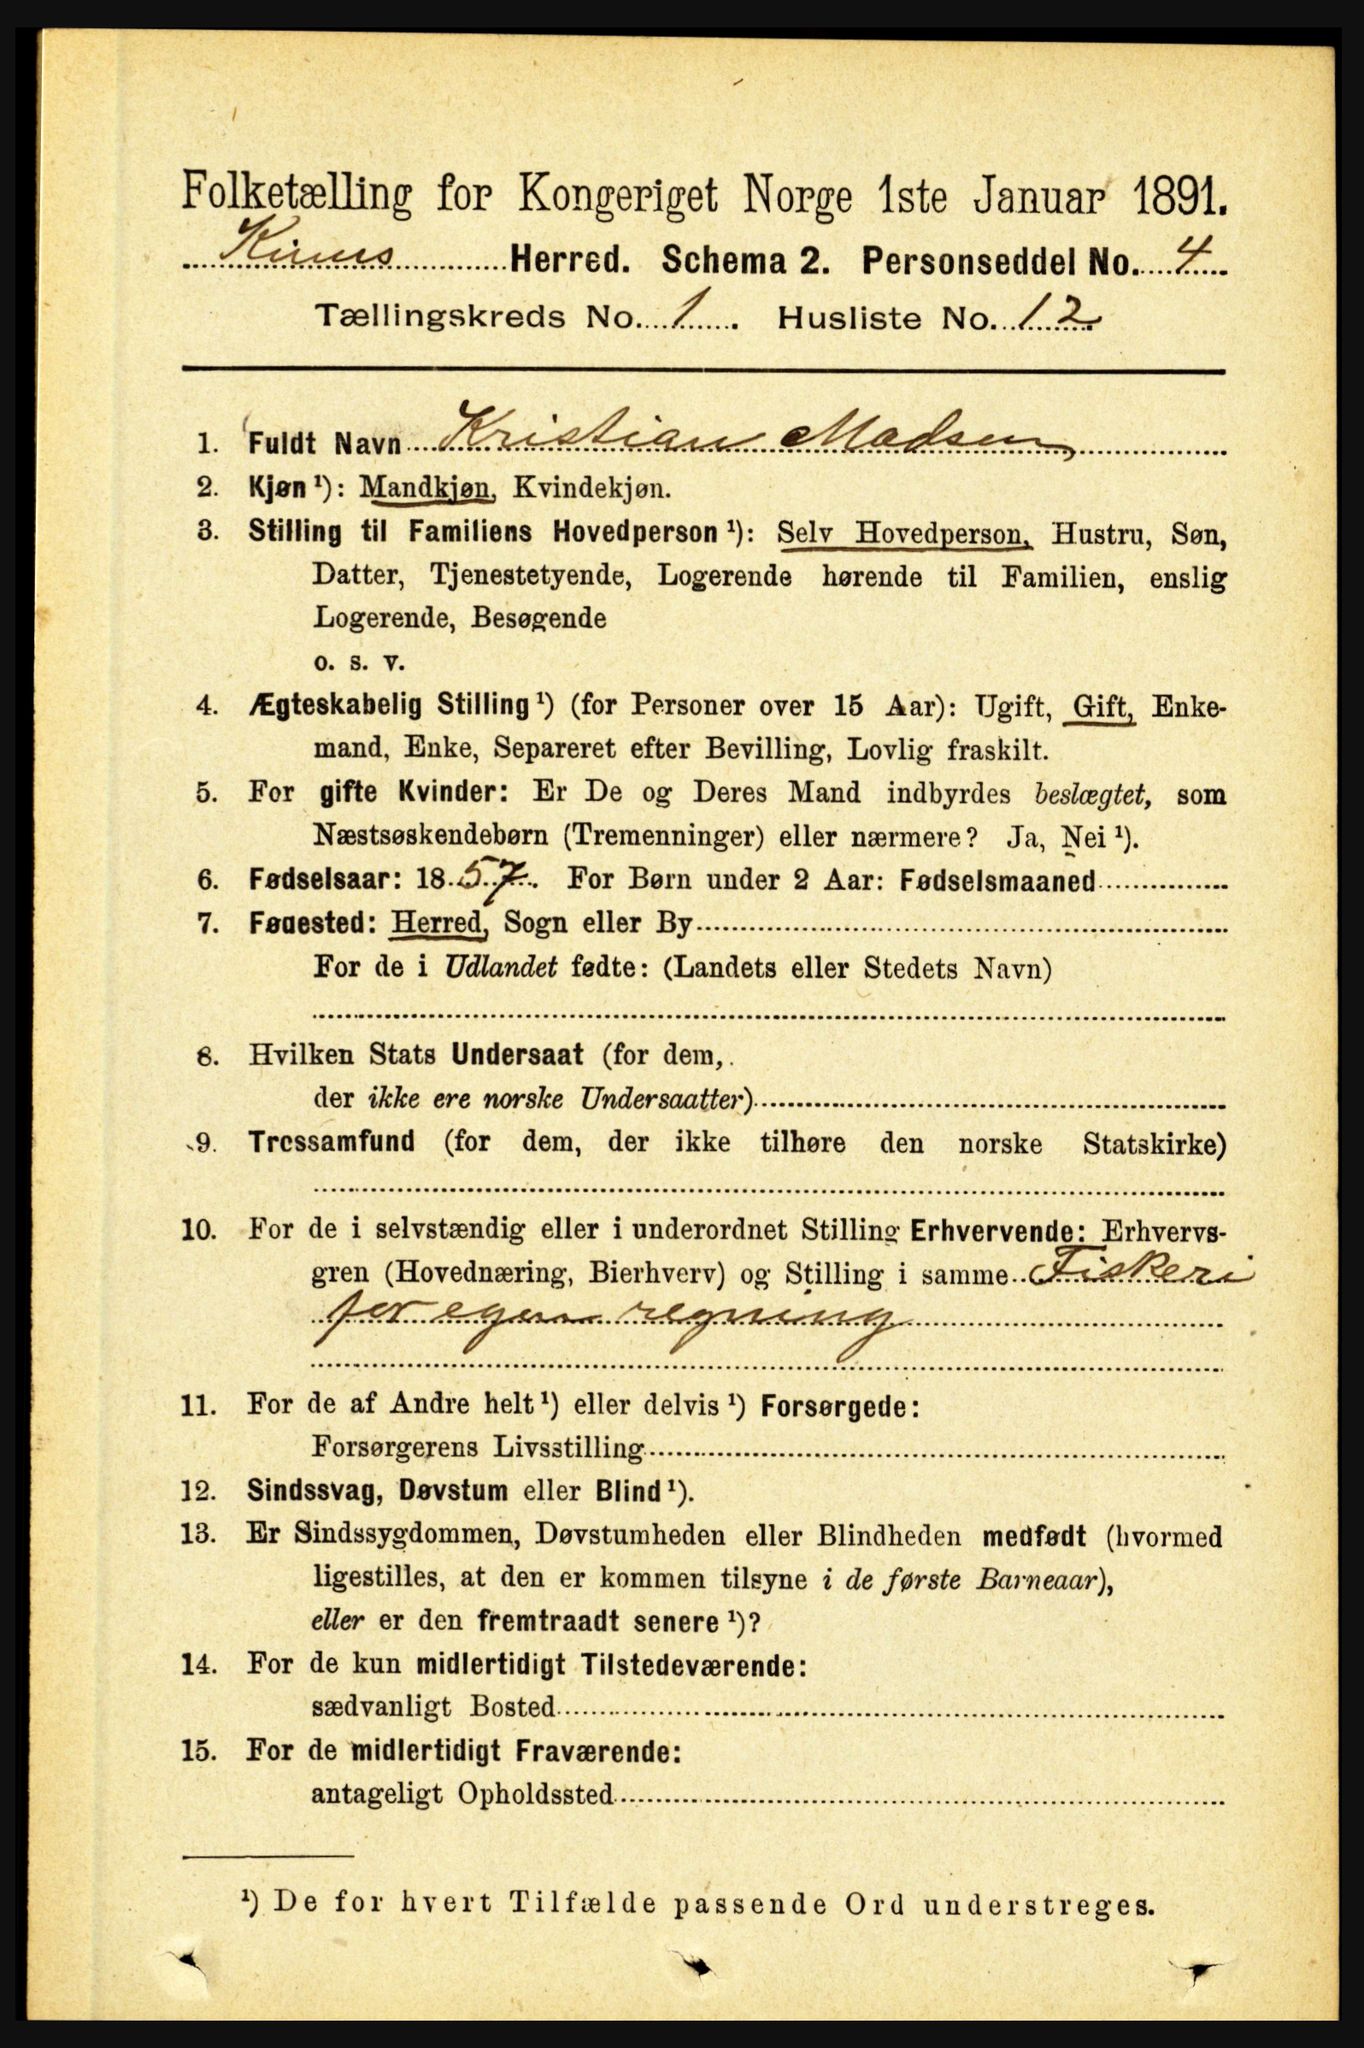 Folketælling for Kongeriget Norge 1ste Januar 1891.
Kinns Herred. Schema 2. Personseddel No. 4
Tællingskreds No. 1. Husliste No. 12.
1. Fuldt Navn Kristian Madsen
2. Kjøn ¹): Mandkjøn, Kvindekjøn.
3. Stilling til Familiens Hovedperson ¹): Selv Hovedperson, Hustru, Søn,
Datter, Tjenestetyende, Logerende hørende til Familien, enslig
Logerende, Besøgende
o. s. v.
4. Ægteskabelig Stilling ¹) (for Personer over 15 Aar): Ugift, Gift, Enke-
mand, Enke, Separeret efter Bevilling, Lovlig fraskilt.
5. For gifte Kvinder: Er De og Deres Mand indbyrdes beslægtet, som
Næstsøskendebørn (Tremenninger) eller nærmere? Ja, Nei ¹).
6. Fødselsaar: 1857. For Børn under 2 Aar: Fødselsmaaned
7. Fødested: Herred, Sogn eller By
For de i Udlandet fødte: (Landets eller Stedets Navn)
8. Hvilken Stats Undersaat (for dem,
der ikke ere norske Undersaatter)
9. Trossamfund (for dem, der ikke tilhøre den norske Statskirke)
10. For de i selvstændig eller i underordnet Stilling Erhvervende: Erhvervs-
gren (Hovednæring, Bierhverv) og Stilling i samme Fiskeri
for egen regning
11. For de af Andre helt ¹) eller delvis ¹) Forsørgede:
Forsørgerens Livsstilling
12. Sindssvag, Døvstum eller Blind ¹).
13. Er Sindssygdommen, Døvstumheden eller Blindheden medfødt (hvormed
ligestilles, at den er kommen tilsyne i de første Barneaar),
eller er den fremtraadt senere ¹)?
14. For de kun midlertidigt Tilstedeværende:
sædvanligt Bosted
15. For de midlertidigt Fraværende:
antageligt Opholdssted
¹) De for hvert Tilfælde passende Ord understreges.